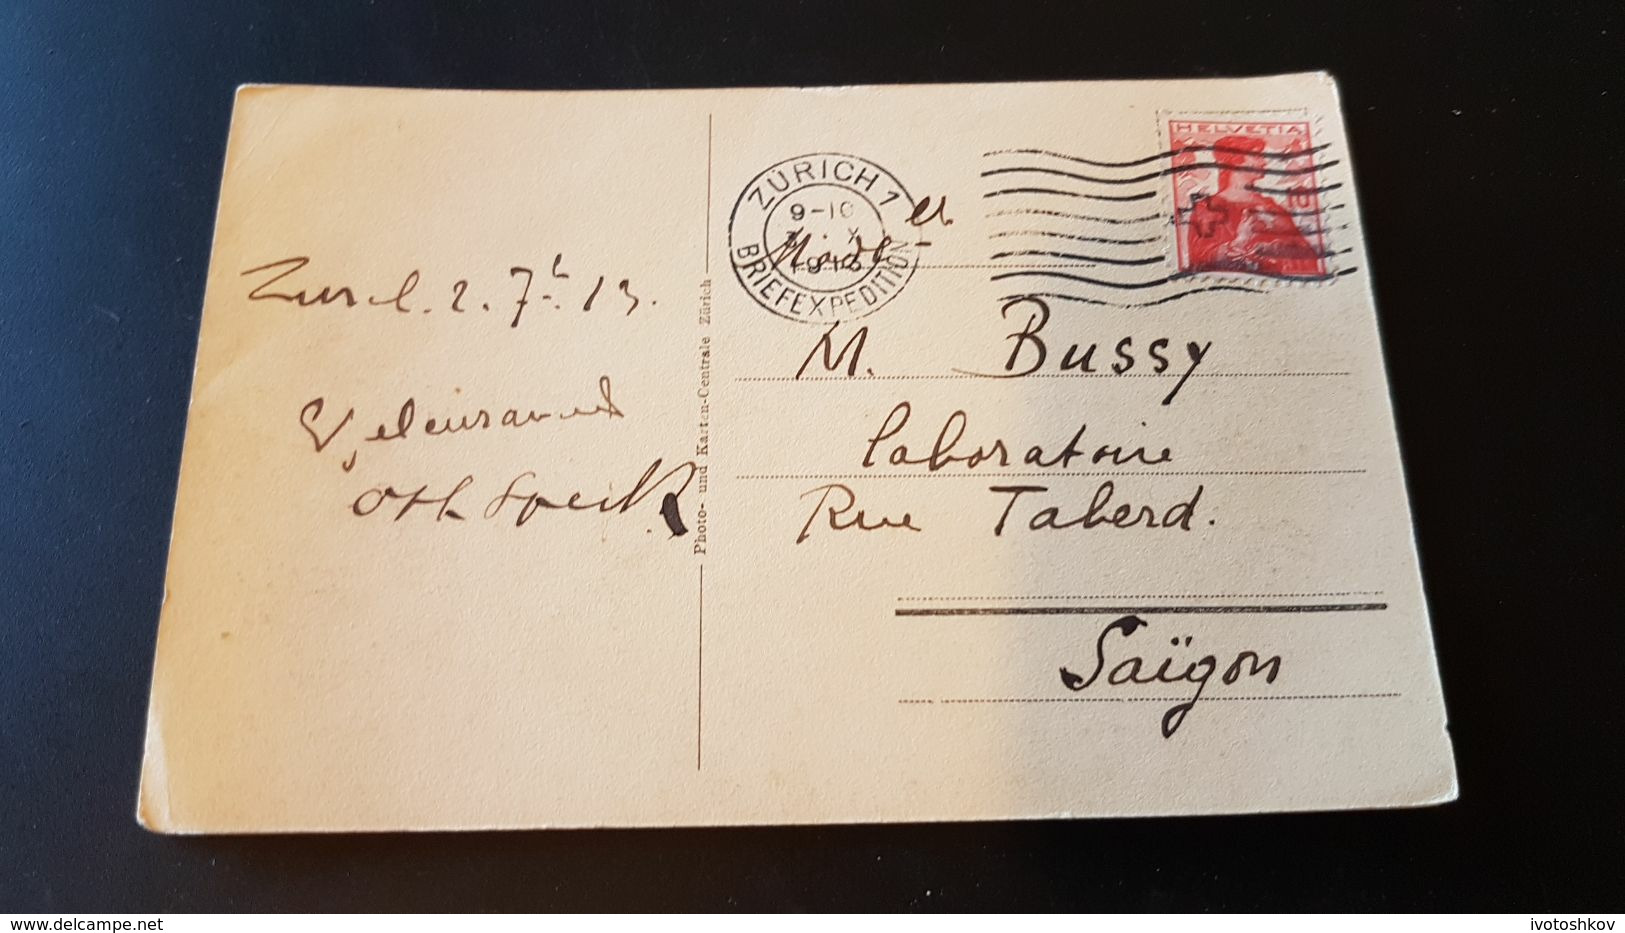 ZÜRICH 1
9-10
X
1913
BRIEFEXPEDITION
HELVETIA
10
2. 7 13.
et Made
M. Bussy
laboratoire
Rue Taberd.
Saïgon
Photo- und Karten-Centrale Zürich
delcampe.net
ivotoshkov